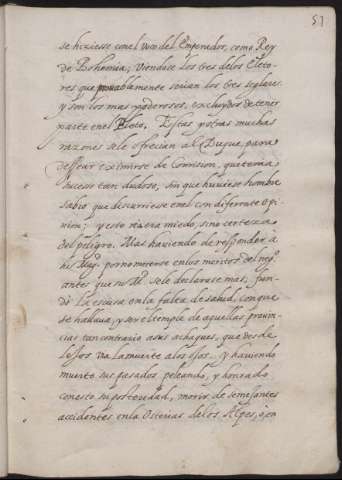 51
se hiziesse con el voto del Emperador, como Rey
de Bohemia; viendose los tres delos Eleto-
res que provablamente serian los tres seglares
y son los mas poderosos, excluydos de tener
parte en el Eleto. Estas y otras muchas
razones se le ofrecian al Duque, para
dessear eximirse de Comision, que tenia
sucesso tan dudoso, sin que huuiese hombre
sabio que discurriesse en el con diferente opi-
nion; y esto no era miedo, sino certeza
del peligro. Mas haviendo de responder à
his Mag. por no meterse en los meritos del neg.
antes que su M. se le declarase mas, fun-
dò la escusa en la falta de salud, con que
se hallava, y ser el temple de aquellas provin-
cias tan contrario a sus achaques, que desde
lexos via la muerte a los ojos. y haviendo
muerto sus pasados peleando, y honrado
con esto su posteridad, morir de semejantes
accidentes en la Osterias de los Alpes, o en